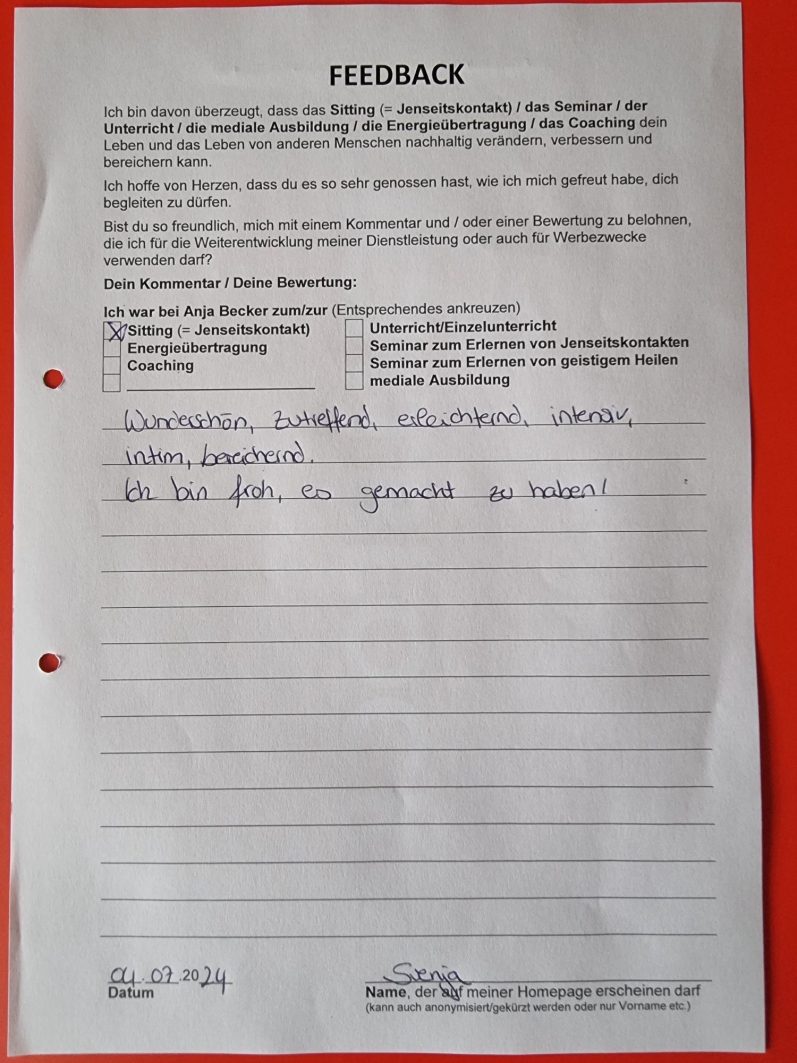 FEEDBACK
Ich bin davon überzeugt, dass das Sitting (= Jenseitskontakt) / das Seminar / der
Unterricht / die mediale Ausbildung / die Energieübertragung / das Coaching dein
Leben und das Leben von anderen Menschen nachhaltig verändern, verbessern und
bereichern kann.
Ich hoffe von Herzen, dass du es so sehr genossen hast, wie ich mich gefreut habe, dich
begleiten zu dürfen.
Bist du so freundlich, mich mit einem Kommentar und / oder einer Bewertung zu belohnen,
die ich für die Weiterentwicklung meiner Dienstleistung oder auch für Werbezwecke
verwenden darf?
Dein Kommentar / Deine Bewertung:
Ich war bei Anja Becker zum/zur (Entsprechendes ankreuzen)
X Sitting (= Jenseitskontakt)
Energieübertragung
Coaching
Unterricht/Einzelunterricht
Seminar zum Erlernen von Jenseitskontakten
Seminar zum Erlernen von geistigem Heilen
mediale Ausbildung
Wunderschön, zutreffend, erleichternd, intensiv,
intim, bereichernd.
Ich bin froh, es gemacht zu haben!
04.07.2024
Datum
Svenja
Name, der auf meiner Homepage erscheinen darf
(kann auch anonymisiert/gekürzt werden oder nur Vorname etc.)